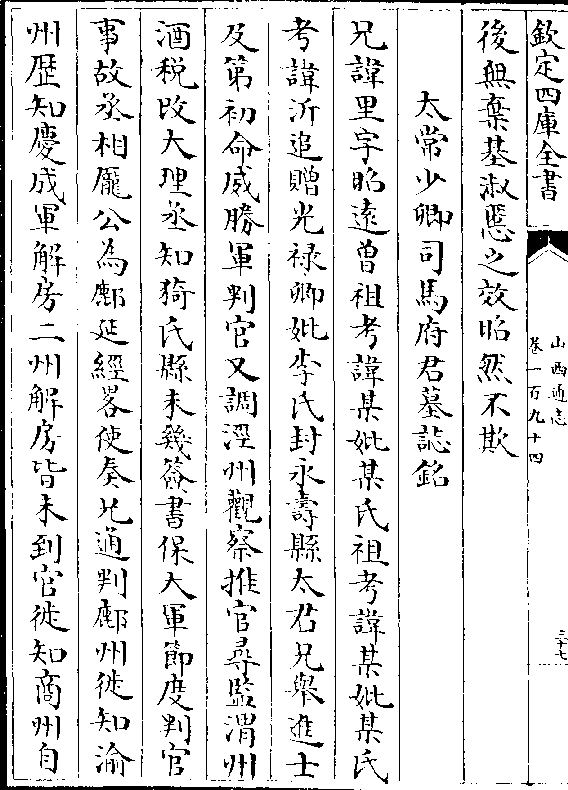 欽定四庫全書
山西通志
卷一百九十四
三十七
後無棄基淑慝之效昭然不欺
太常少卿司馬府君墓誌銘
兄諱里字昭遠曾祖考諱某妣某氏祖考諱某妣某氏
考諱沂追贈光禄卿妣李氏封永壽縣太君兄舉進士
及第初命威勝軍判官又調涇州觀察推官尋監渭州
酒税改大理丞知猗氏縣未幾簽書保大軍節度判官
事故丞相龎公為鄜延經畧使奏兄通判鄜州徙知渝
州歴知慶成軍解房二州解房皆未到官徙知商州自